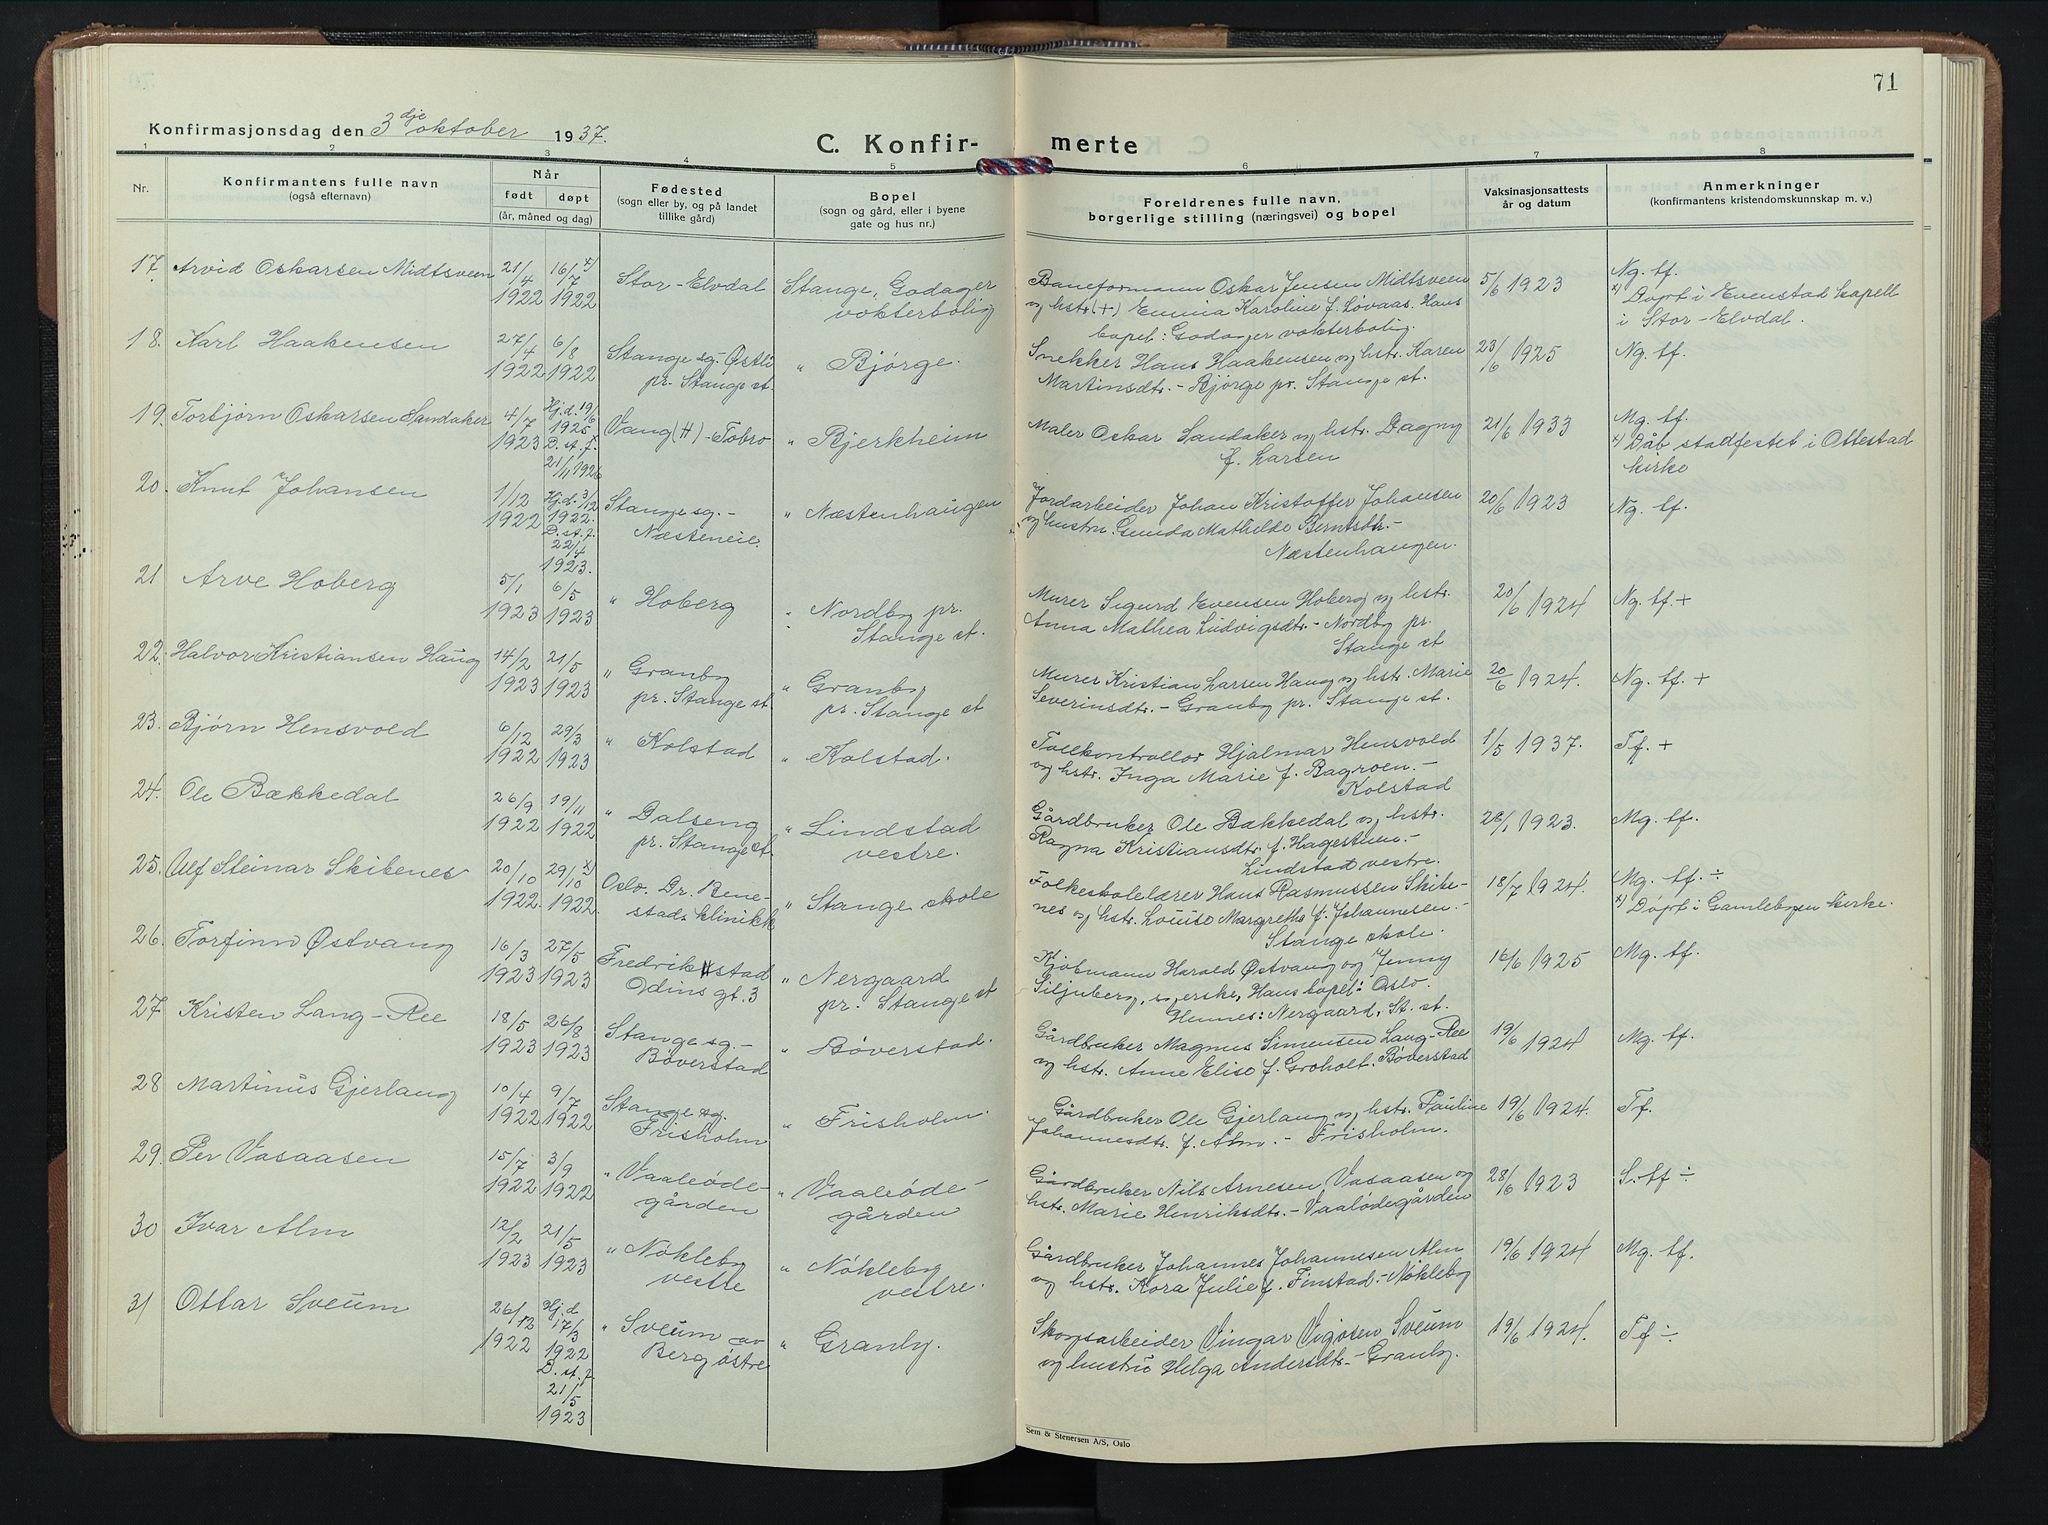 71
Konfirmasjonsdag den 3dje oktober 1937.
C. Konfir- merte
1 2 3 4 5 6 7 8
Nr.
Konfirmantens fulle navn
(også efternavn)
Når
født døpt
(år, måned og dag)
Fødested
(sogn eller by, og på landet
tillike gård)
Bopel
(sogn og gård, eller i byene
gate og hus nr.)
Foreldrenes fulle navn,
borgerlige stilling (næringsvei) og bopel
Vaksinasjonsattests
år og datum
Anmerkninger
(konfirmantens kristendomskunnskap m. v.)
17. Arvid Oskarsen Midtsveen 21/4 1922 16/7 x) 1922 Stor-Elvdal Stange, Godager
vokterbolig
Baneformann Oskar Jensen Midtsveen 5/6 1923 Ng. tf.
og hstr (+) Emma Karoline f. Løvaas. Hans x) Døpt i Evenstad kapell
bopel: Godager vokterbolig. i Stor-Elvdal.
18. Karl Haakensen 27/4 1922 6/8 1922 Stange sg.- Østli
pr. Stange st. " Bjørge.
Snekker Hans Haakensen og hstr. Karen 23/6 1925 Ng. tf.
Martinsdtr. - Bjørge pr. Stange st.
19. Torbjørn Oskarsen Sandaker 4/7 1923 Hj.d. 19/6
1925
D. st. f.
21/11 1926 Vang (H) - Tobro " Bjerkheim
Maler Oskar Sandaker og hstr. Dagny 21/6 1933 Mg. tf.
f. Larsen x) Dåb stadfestet i Ottestad
kirke
20. Knut Johansen 1/12 1922 Hj.d. 3/12
1922.
D. st. f.
22/4
1923. Stange sg. -
Næsteneie. " Næstenhaugen
Jordarbeider Johan Kristoffer Johansen 20/6 1923 Ng. tf.
og hustru Gunda Mathilde Berntsdtr. -
Næstenhaugen.
21 Arve Hoberg 5/1 1923 6/5 1923 " Hoberg " Nordby pr.
Stange st.
Murer Sigurd Evensen Hoberg og hstr. 20/6 1924 Ng. tf. +
Anna Mathea Ludvigsdtr. - Nordby pr.
Stange st
22. Halvor Kristiansen Haug 14/2 1923 21/5 1923 " Granby
pr. Stange st " Granby
pr. Stange st
Murer Kristian Larsen Haug og hstr. Marie 20/6 1924. Ng. tf. +
Severinsdtr. - Granby pr. Stange st.
23. Bjørn Hensvold 6/12 1922 29/3 1923 " Kolstad " Kolstad.
Tollkontrollør Hjalmar Hensvold 1/5 1937. Tf. +
og hstr. Inga Marie f. Bagroen. -
Kolstad
24. Ole Bækkedal 26/9 1922 19/11 1922 " Dalseng
pr. Stange st. " Lindstad
vestre.
Gårdbruker Ole Bækkedal og hstr. 28/1 1923. Mg. tf.
Ragna Kristiansdtr. f. Hagestuen. -
Lindstad vestre.
25. Ulf Steinar Skibenes 20/10 1922. 29/10 x) 1922. Oslo. Dr. Bene-
stads klinikk " Stange skole
Folkeskolelærer Hans Rasmussen Skibe- 18/7 1924. Mg. tf. ÷
nes og hstr. Louise Margrethe f. Johannesen. - x) Døpt i Gamlebyen kirke.
Stange skole.
26. Torfinn Østvang 16/3 1923 27/5 1923 Fredrikstad
Odins gt. 3 " Nergaard
pr. Stange st
Kjøbmann Harald Østvang og Jenny 16/6 1925 Mg. tf.
Siljuberg, syerske, Hans bopel: Oslo.
Hennes: Nergaard, St. st.
27 Kristen Lang-Ree 18/5 1923 26/8 1923 Stange sg. -
Bøverstad " Bøverstad.
Gårdbruker Magnus Simensen Lang-Ree 19/6 1924 Mg. tf.
og hstr. Anne Elise f. Groholt. Bøverstad
28 Martinus Gjerlang 10/4 1922 9/7 1922 Stange sg.
Frisholm " Frisholm.
Gårdbruker Ole Gjerlang og hstr. Pauline 19/6 1924. Tf.
Johannesdtr. f. Alm. - Frisholm.
29. Per Vasaasen 15/7 1922 3/9 1922 " Vaaløde-
gården " Vaaløde-
gården
Gårdbruker Nils Arnesen Vasaasen og 28/6 1923 S. tf ÷
hstr. Marie Henriksdtr. - Vaalødegården
30 Ivar Alm 12/2 1923 21/5 1923 " Nøkleby
vestre " Nøkleby
vestre.
Gårdbruker Johannes Johannesen Alm 19/6 1924 Mg. tf.
og hstr. Kora Julie f. Finstad. - Nøkleby
31 Ottar Sveum 26/12 1922 Hj.d
17/3
1922
D. st. f
21/5
1923 " Sveum av
Berg østre " Granby.
Skogsarbeider Vingar Vigosen Sveum 19/6 1924. Tf ÷
og hustru Helga Andersdtr. - Granby.
Sem & Stenersen A/S, Oslo